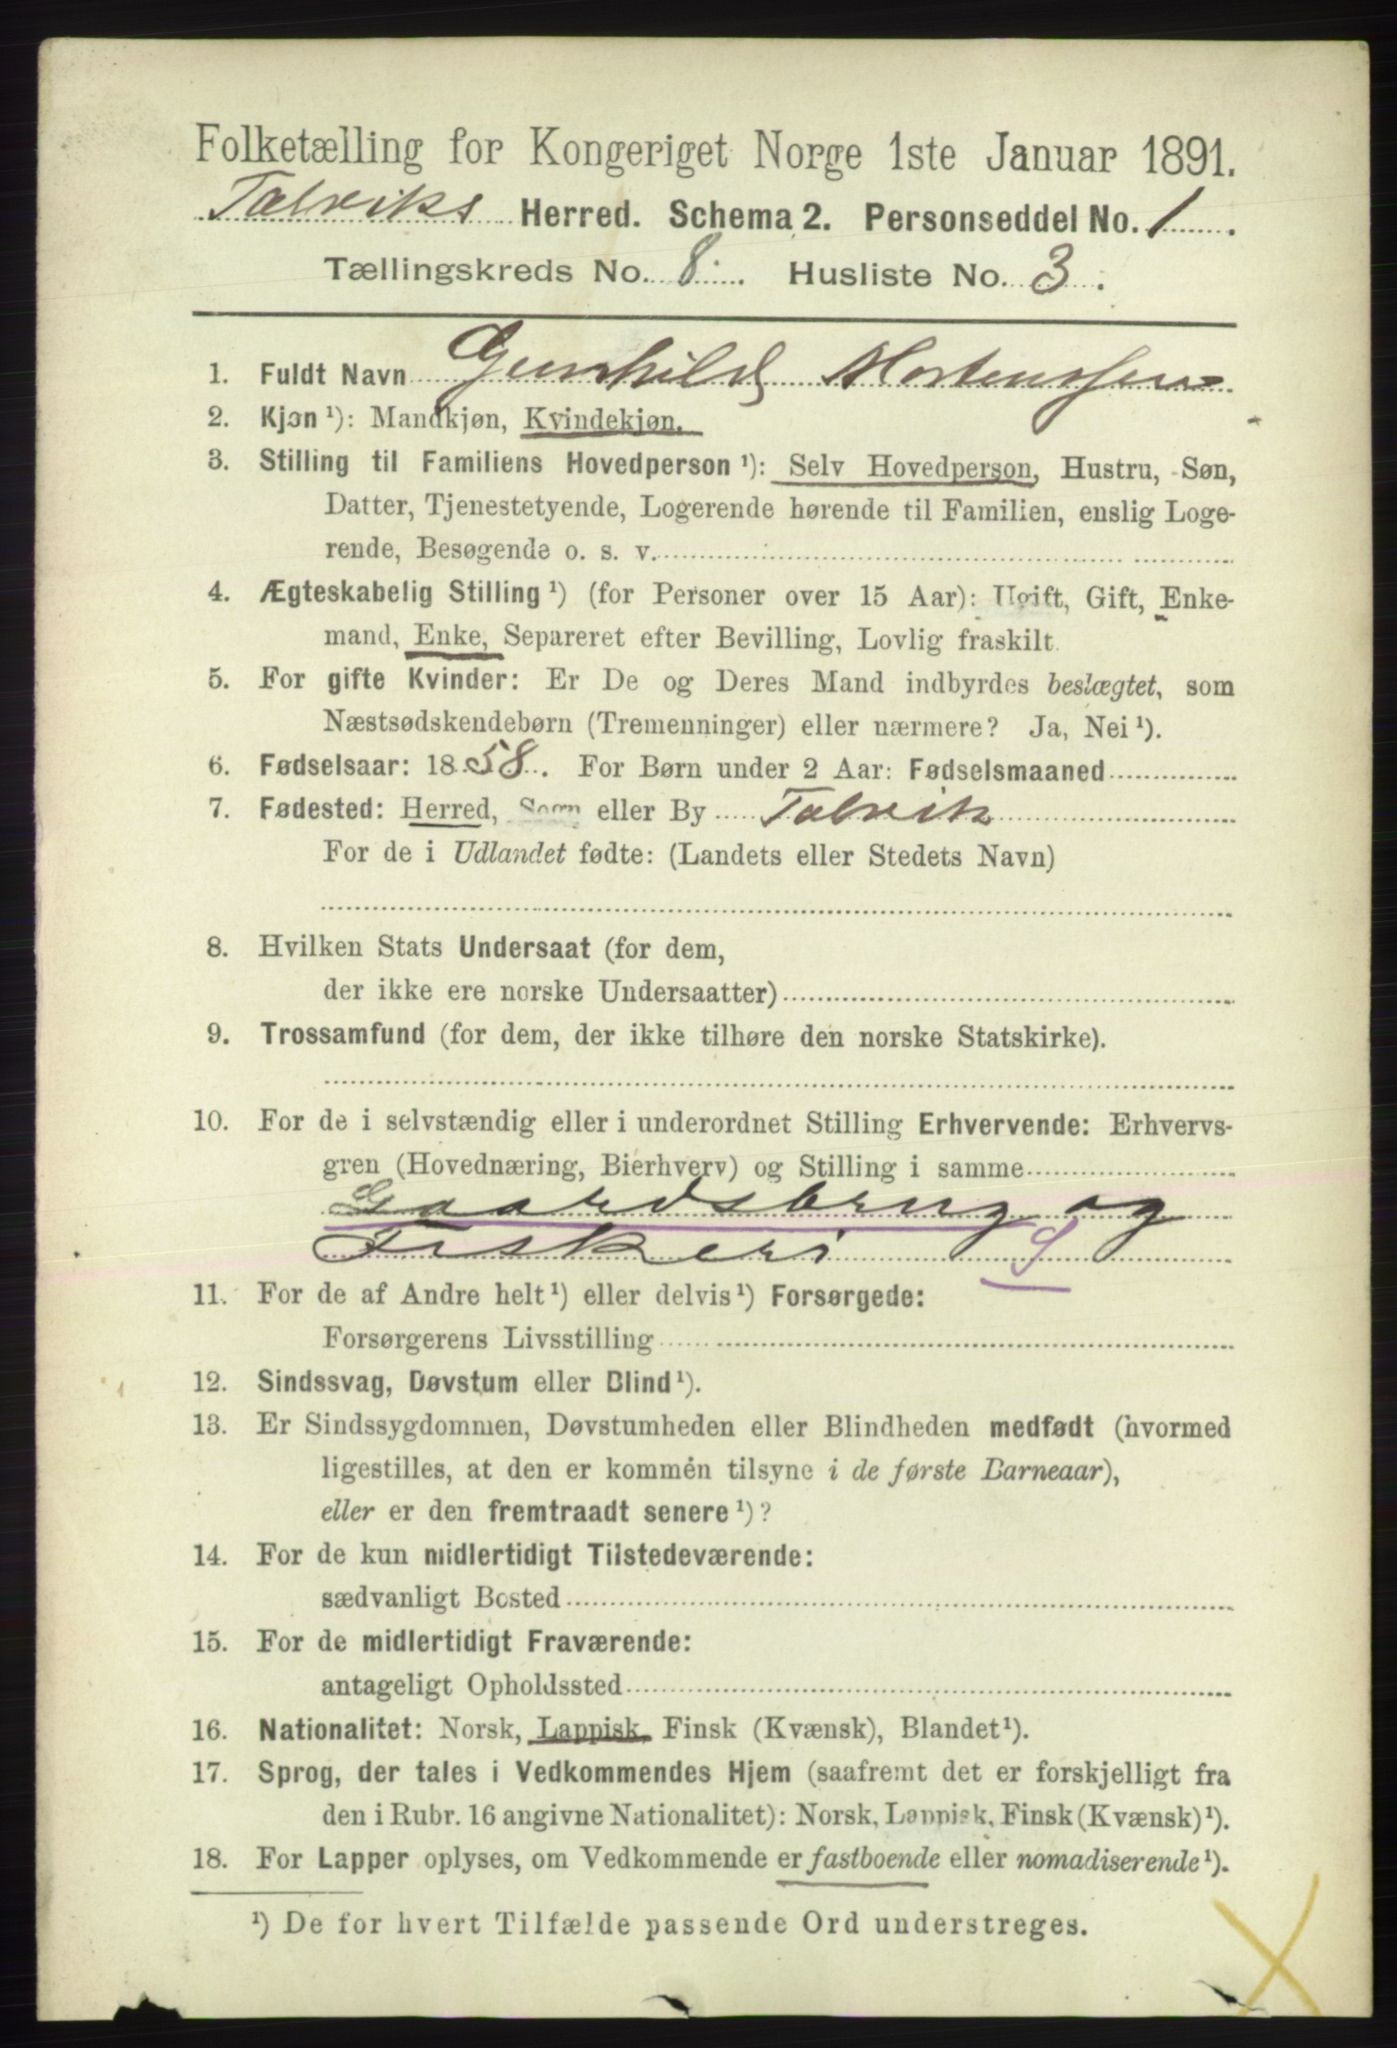 Folketælling for Kongeriget Norge 1ste Januar 1891.
Talviks Herred. Schema 2. Personseddel No. 1.
Tællingskreds No. 8. Husliste No. 3.
1. Fuldt Navn Gunhild Mortensen
2. Kjøn ¹): Mandkjøn, Kvindekjøn.
3. Stilling til Familiens Hovedperson ¹): Selv Hovedperson, Hustru, Søn,
Datter, Tjenestetyende, Logerende hørende til Familien, enslig Loge-
rende, Besøgende o. s. v.
4. Ægteskabelig Stilling ¹) (for Personer over 15 Aar): Ugift, Gift, Enke-
mand, Enke, Separeret efter Bevilling, Lovlig fraskilt.
5. For gifte Kvinder: Er De og Deres Mand indbyrdes beslægtet, som
Næstsødskendebørn (Tremenninger) eller nærmere? Ja, Nei ¹).
6. Fødselsaar: 1858. For Børn under 2 Aar: Fødselsmaaned
7. Fødested: Herred, Sogn eller By Talvik
For de i Udlandet fødte: (Landets eller Stedets Navn)
8. Hvilken Stats Undersaat (for dem,
der ikke ere norske Undersaatter)
9. Trossamfund (for dem, der ikke tilhøre den norske Statskirke).
10. For de i selvstændig eller i underordnet Stilling Erhvervende: Erhvervs-
gren (Hovednæring, Bierhverv) og Stilling i samme
Gaardsbrug og
Fiskeri S
11. For de af Andre helt ¹) eller delvis ¹) Forsørgede:
Forsørgerens Livsstilling
12. Sindssvag, Døvstum eller Blind ¹).
13. Er Sindssygdommen, Døvstumheden eller Blindheden medfødt (hvormed
ligestilles, at den er kommén tilsyne i de første Barneaar),
eller er den fremtraadt senere ¹)?
14. For de kun midlertidigt Tilstedeværende:
sædvanligt Bosted
15. For de midlertidigt Fraværende:
antageligt Opholdssted
16. Nationalitet: Norsk, Lappisk, Finsk (Kvænsk), Blandet ¹).
17. Sprog, der tales i Vedkommendes Hjem (saafremt det er forskjelligt fra
den i Rubr. 16 angivne Nationalitet): Norsk, Lappisk, Finsk (Kvænsk) ¹).
18. For Lapper oplyses, om Vedkommende er fastboende eller nomadiserende ¹).
¹) De for hvert Tilfælde passende Ord understreges.